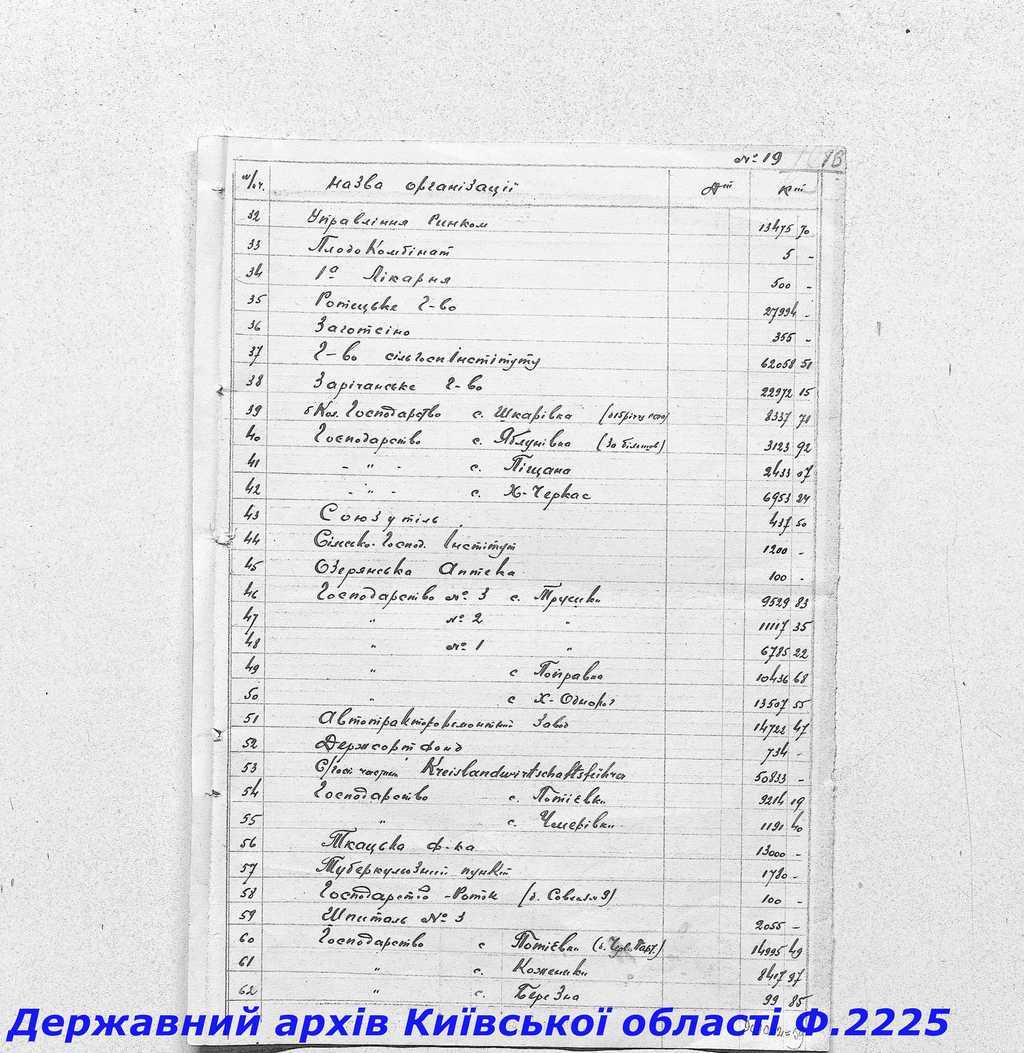 № 19 18
№/пч. Назва організації Дт Кт
32 Управління Ринком 13475 70
33 ПлодоКомбінат 5 -
34 1а Лікарня 500 -
35 Ротицьке Г-во 27994 -
36 Заготсіно 355 -
37 Г-во сільгосп Інституту 62058 51
38 Зарічанське Г-во 22972 15
39 б Кол. Господарство с. Шкарівка 8337 71
40 Господарство с. Яблунівка (За більшов) 3123 92
41 - " - с. Піщана 2433 07
42 - " - с. Х-Черкас 6953 24
43 Союзутіль 437 50
44 Сільсько-Господ. Інститут 1200 -
45 Озерянська Аптека 100 -
46 Господарство № 3 с. Трушки 9529 83
47 " № 2 " 11117 35
48 " № 1 " 6785 22
49 " с Поправка 10436 68
50 " с Х-Одноріг 13507 55
51 Автотракторремонтний Завод 14722 47
52 Держсортфонд 734 -
53 С/госп частина 50833 -
54 Господарство с. Потіївки 9214 19
55 " с. Чмерівки 1191 40
56 Ткацька ф-ка 13000 -
57 Туберкульозний пункт 1780 -
58 Господарство - Роток 100 -
59 Шпиталь № 3 2055 -
60 Господарство с Потіївки (б. Черв. Парт.) 14995 49
61 " с. Коженики 8417 97
62 " с. Березна 99 85
Державний архів Київської області Ф.2225